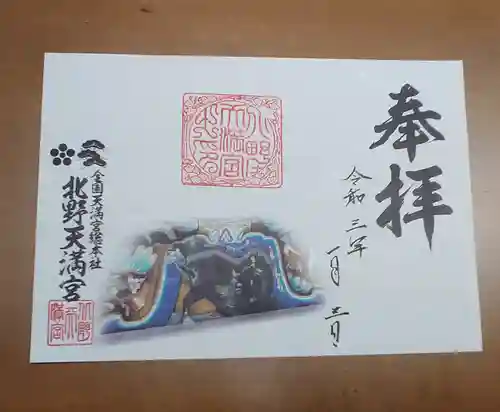 奉拝
令和三年
一月三日
全国天満宮総本社
北野天満宮